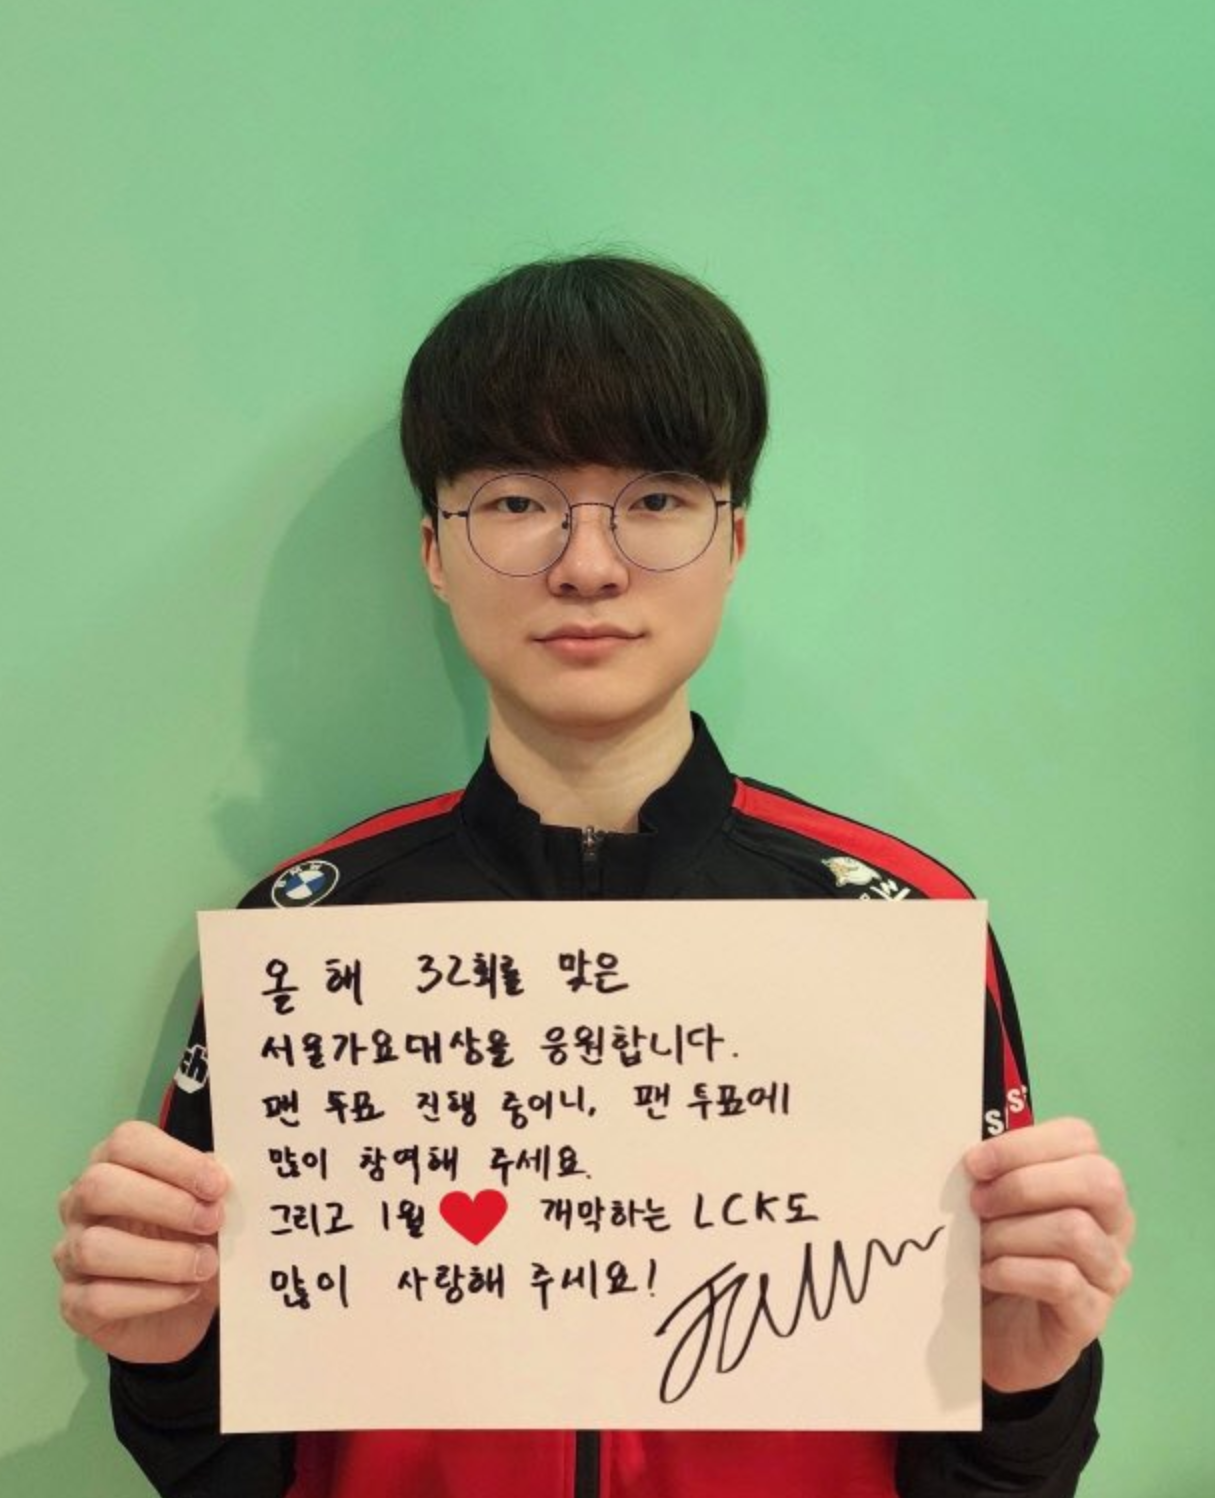 올 해 32회를 맞은
서울가요대상을 응원합니다.
팬 투표 진행 중이니, 팬 투표에
많이 참여해 주세요.
그리고 1월 ♥ 개막하는 LCK도
많이 사랑해 주세요!
BMW